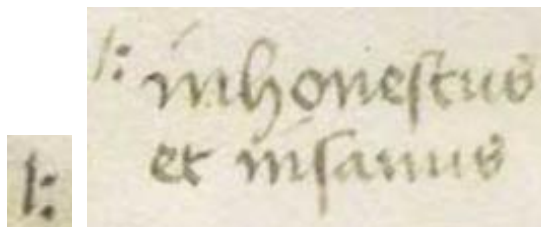 /: inhonestus
et insanus
/: